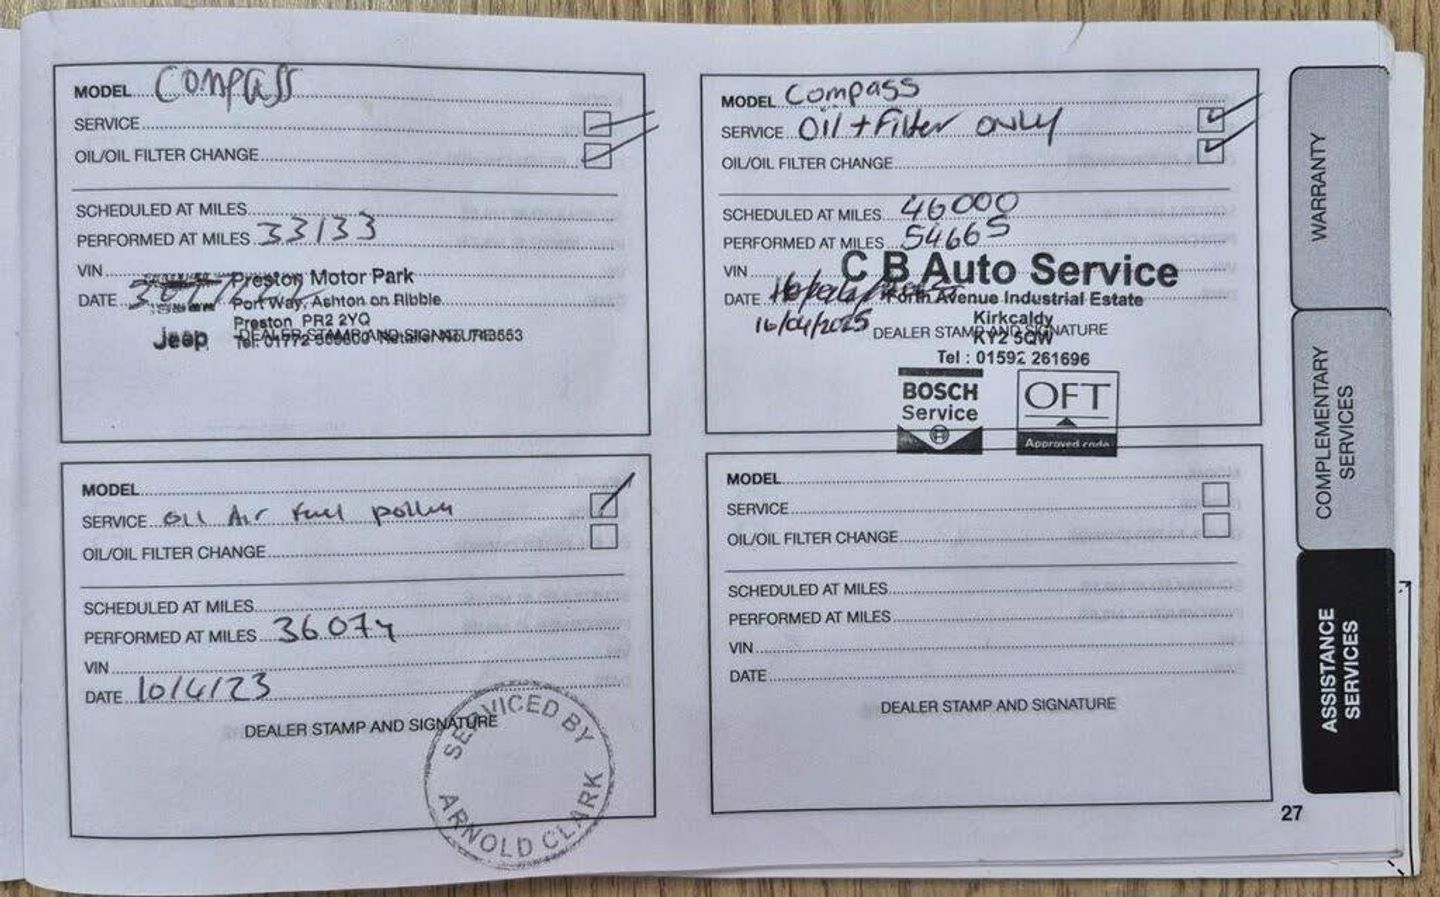 MODEL Compass
SERVICE
OIL/OIL FILTER CHANGE
SCHEDULED AT MILES
PERFORMED AT MILES 33133
VIN
DATE
Preston Motor Park
Port Way, Ashton on Ribble
Preston PR2 2YQ
Jeep
DEALER STAMP AND SIGNATURE
MODEL Compass
SERVICE Oil + Filter only
OIL/OIL FILTER CHANGE
SCHEDULED AT MILES 46000
PERFORMED AT MILES 54665
VIN
C B Auto Service
DATE
Forth Avenue Industrial Estate
Kirkcaldy
16/04/2025
DEALER STAMP AND SIGNATURE
KY2 5QW
Tel : 01592 261696
BOSCH
Service
OFT
Approved code
MODEL
SERVICE Oil Air fuel pollen
OIL/OIL FILTER CHANGE
SCHEDULED AT MILES
PERFORMED AT MILES 36074
VIN
DATE 10/4/23
DEALER STAMP AND SIGNATURE
SERVICED BY
ARNOLD CLARK
MODEL
SERVICE
OIL/OIL FILTER CHANGE
SCHEDULED AT MILES
PERFORMED AT MILES
VIN
DATE
DEALER STAMP AND SIGNATURE
WARRANTY
COMPLEMENTARY
SERVICES
ASSISTANCE
SERVICES
27